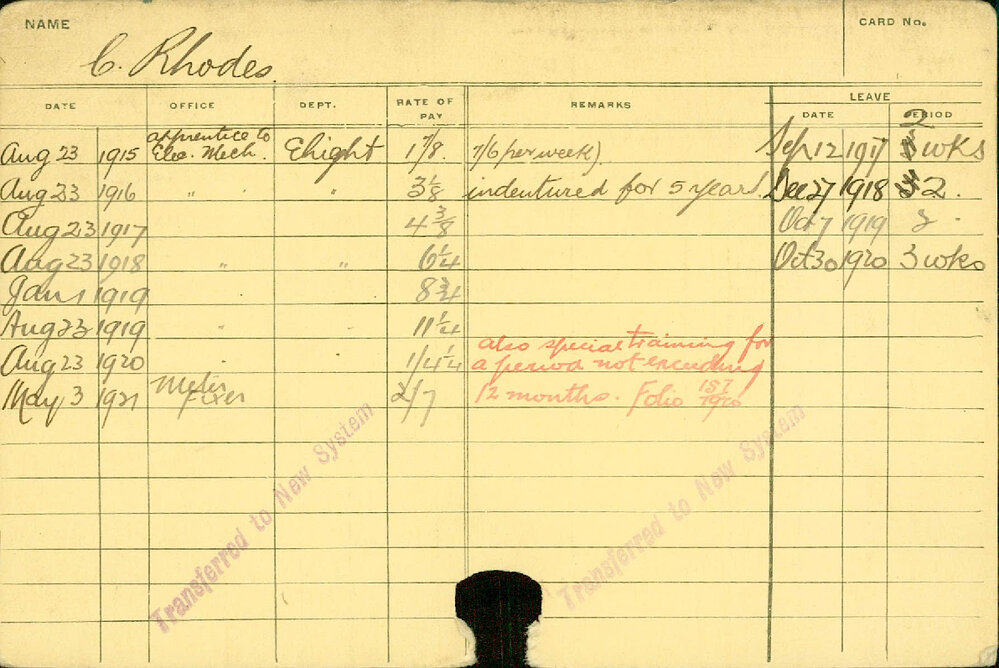 NAME
CARD No.
C. Rhodes.
DATE OFFICE DEPT. RATE OF PAY REMARKS LEAVE DATE PERIOD
Aug 23 1915 apprentice to Elec. Mech. Elight 1 7/8. 7/6 per week). Sep 12 1917 2 wks
Aug 23 1916 " " " 3 1/8 indentured for 5 years. Dec 27 1918 2.
Aug 23 1917 4 3/8 Oct 7 1919 2
Aug 23 1918 " " 6 1/4 Oct 30 1920 3 wks
Jan 1 1919 8 3/4
Aug 23 1919 " 11 1/4
also special training for
Aug 23 1920 " 1/4 1/4 a period not exceeding
May 3 1921 Meter Fixer 2/7 12 months. Folio 157/1920
Transferred to New System
Transferred to New System